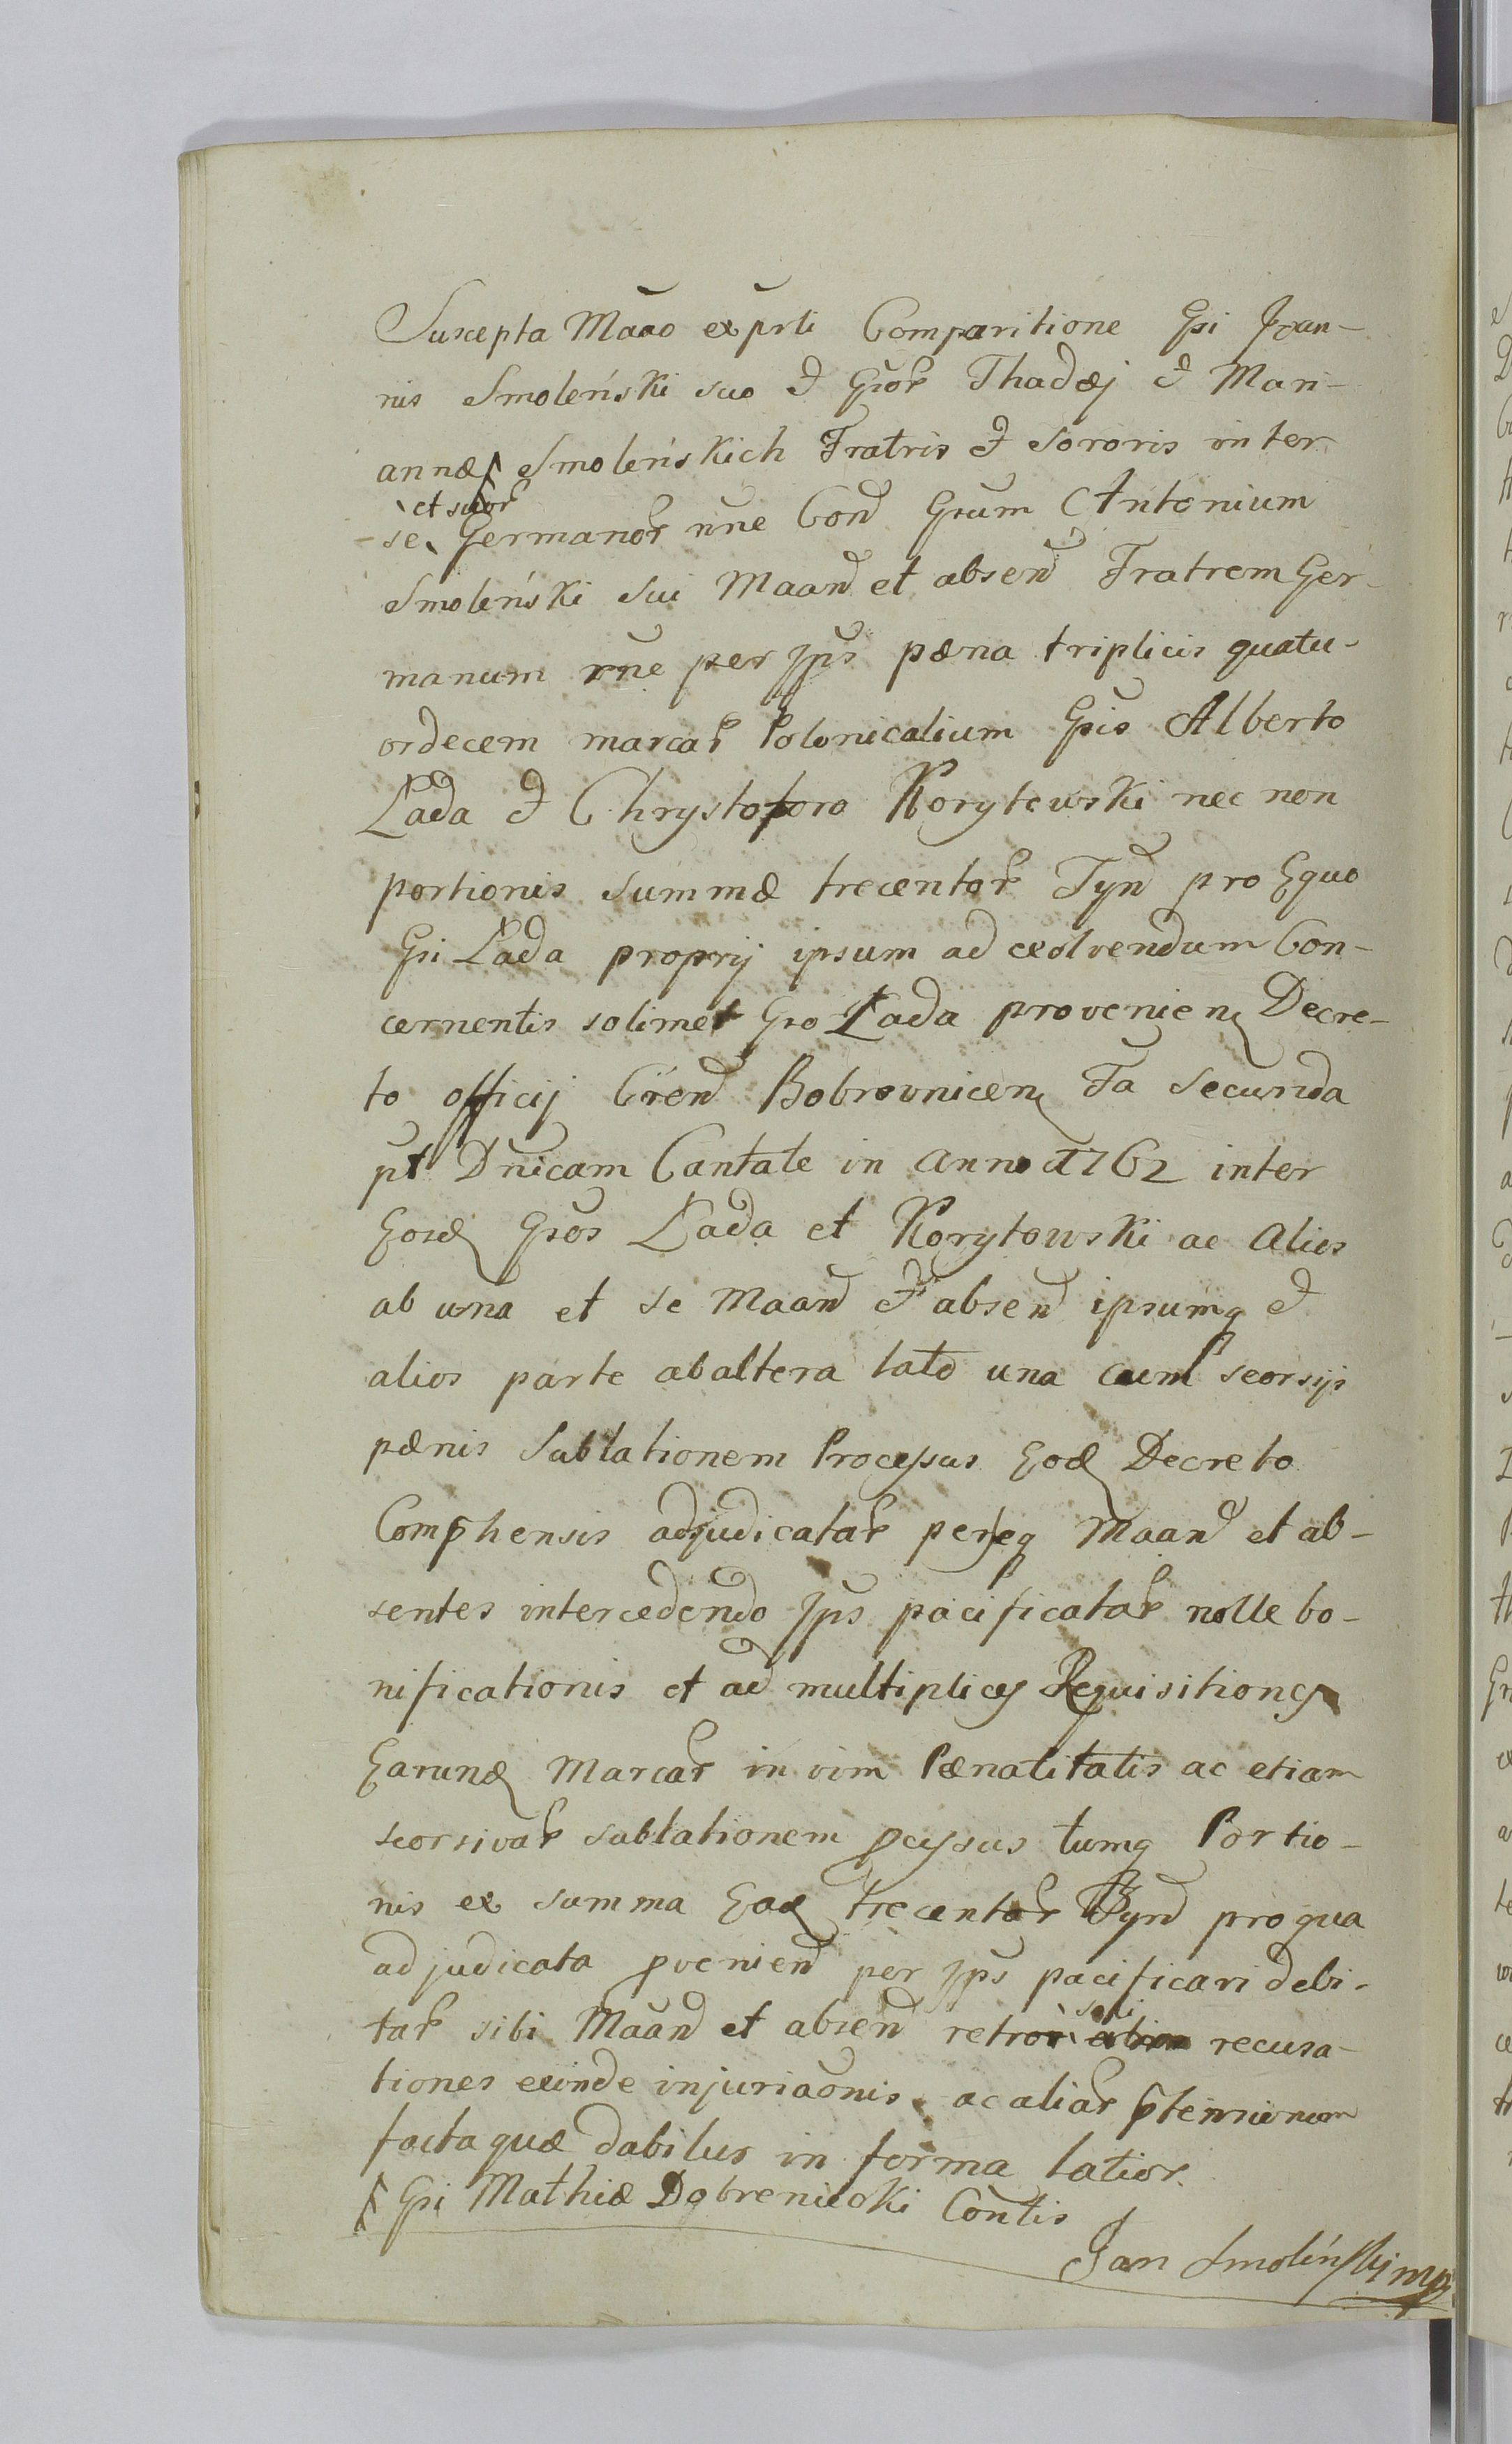 Suscepta Maão ex prti Comparitione Gsi Joan-
nis Smoleński suo et Gror Thadæj et Mari-
annæ Smoleńskich Fratris et Sororis inter
et suor
se Germanor rñe Cond Grum Antonium
Smoleński sui Maand et absend Fratrem Ger-
manum rñe per Jps pæna triplicis quatu-
ordecem marcar Polonicalium Gsis Alberto
Łada et Chrystoforo Korytowski nec non
portionis summæ trecentor Tynd pro Equo
Gsi Łada proprij ipsum ad exolvendum Con-
cernentis solimet Gso Łada provenien Decre-
to officij Cren̄d Bobrovnicen Fa Secunda
pt Dnicam Cantate in Anno 1762 inter
Eosd Gros Łada et Korytowski ac alios
ab una et se Maand et absend ipsumq et
alios parte ab altera lato una cum seorsis
pænis Sublationem Processus Eod Decreto
Comphensis adjudicatar perseq Maand et ab-
sentes intercedendo Jps pacificatar nolle bo-
nificationis et ad multiplices Requisitiones
Earund Marcar in vim Pænalitatis ac etiam
seorsivar sublationem pcessus tumq Portio-
nis ex summa Ead trecentor Tynd pro qua
adjudicata pveniend per Jps pacificari debi-
tar sibi Maand et absend retror soli recusa-
tiones exinde injuriaonis ac aliar ptensionum
facta quæ dabitur in forma latior.
Gsi Mathiæ Dobrenieoki Contis
Jan Smolińskij mp